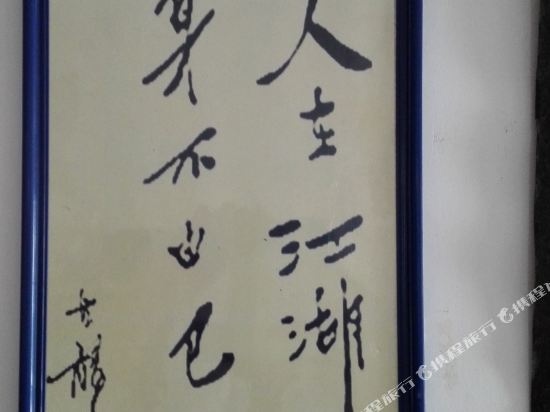 人在江湖
身不由己
古龍
携程旅行
携程旅行